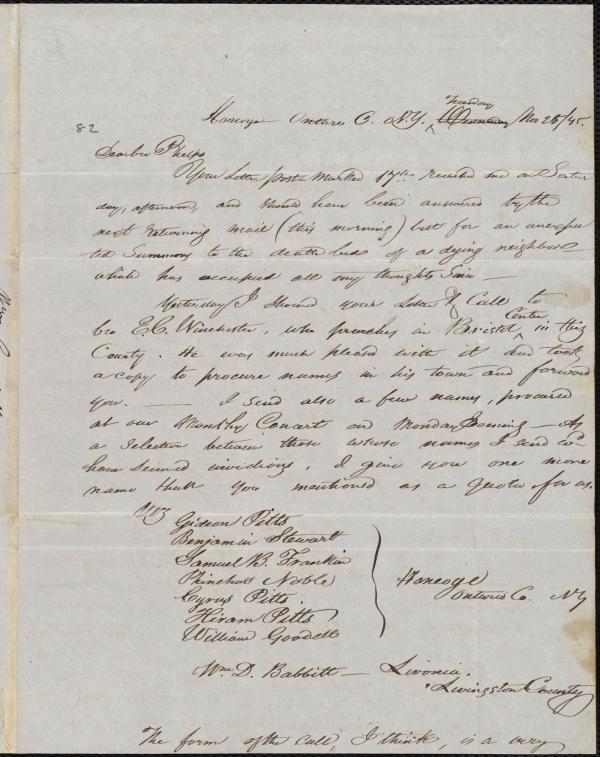 82
Honeoye Ontario Co. N.Y. Tuesday Nov 25/45.
Dear bro Phelps
Your Letter post marked 17th received me on Satur
day, afternoon, and should have been answered by the
next returning mail (this morning) but for an unexpec
ted Summons to the death bed of a dying neighbor
which has occupied all my thoughts Since —
Yesterday I showed your Letter & Call to
bro E. C. Winchester, who preaches in Bristol Center in this
County. He was much pleased with it and took
a copy to procure names in his town and forward
you. — I send also a few names, procured
at our Monthly Concert on Monday Evening — As
a selection between those whose names I send wd
have seemed invidious, I give you one more
name than you mentioned as a quota for us.
Viz
Gideon Pitts
Benjamin Stewart
Samuel B. Franklin
Phinehas Noble
Cyrus Pitts.
Hiram Pitts
William Goodell
Honeoye
Ontario Co. NY
Wm. D. Babbitt — Livonia,
Livingston County
The form of the Call, I think, is a very